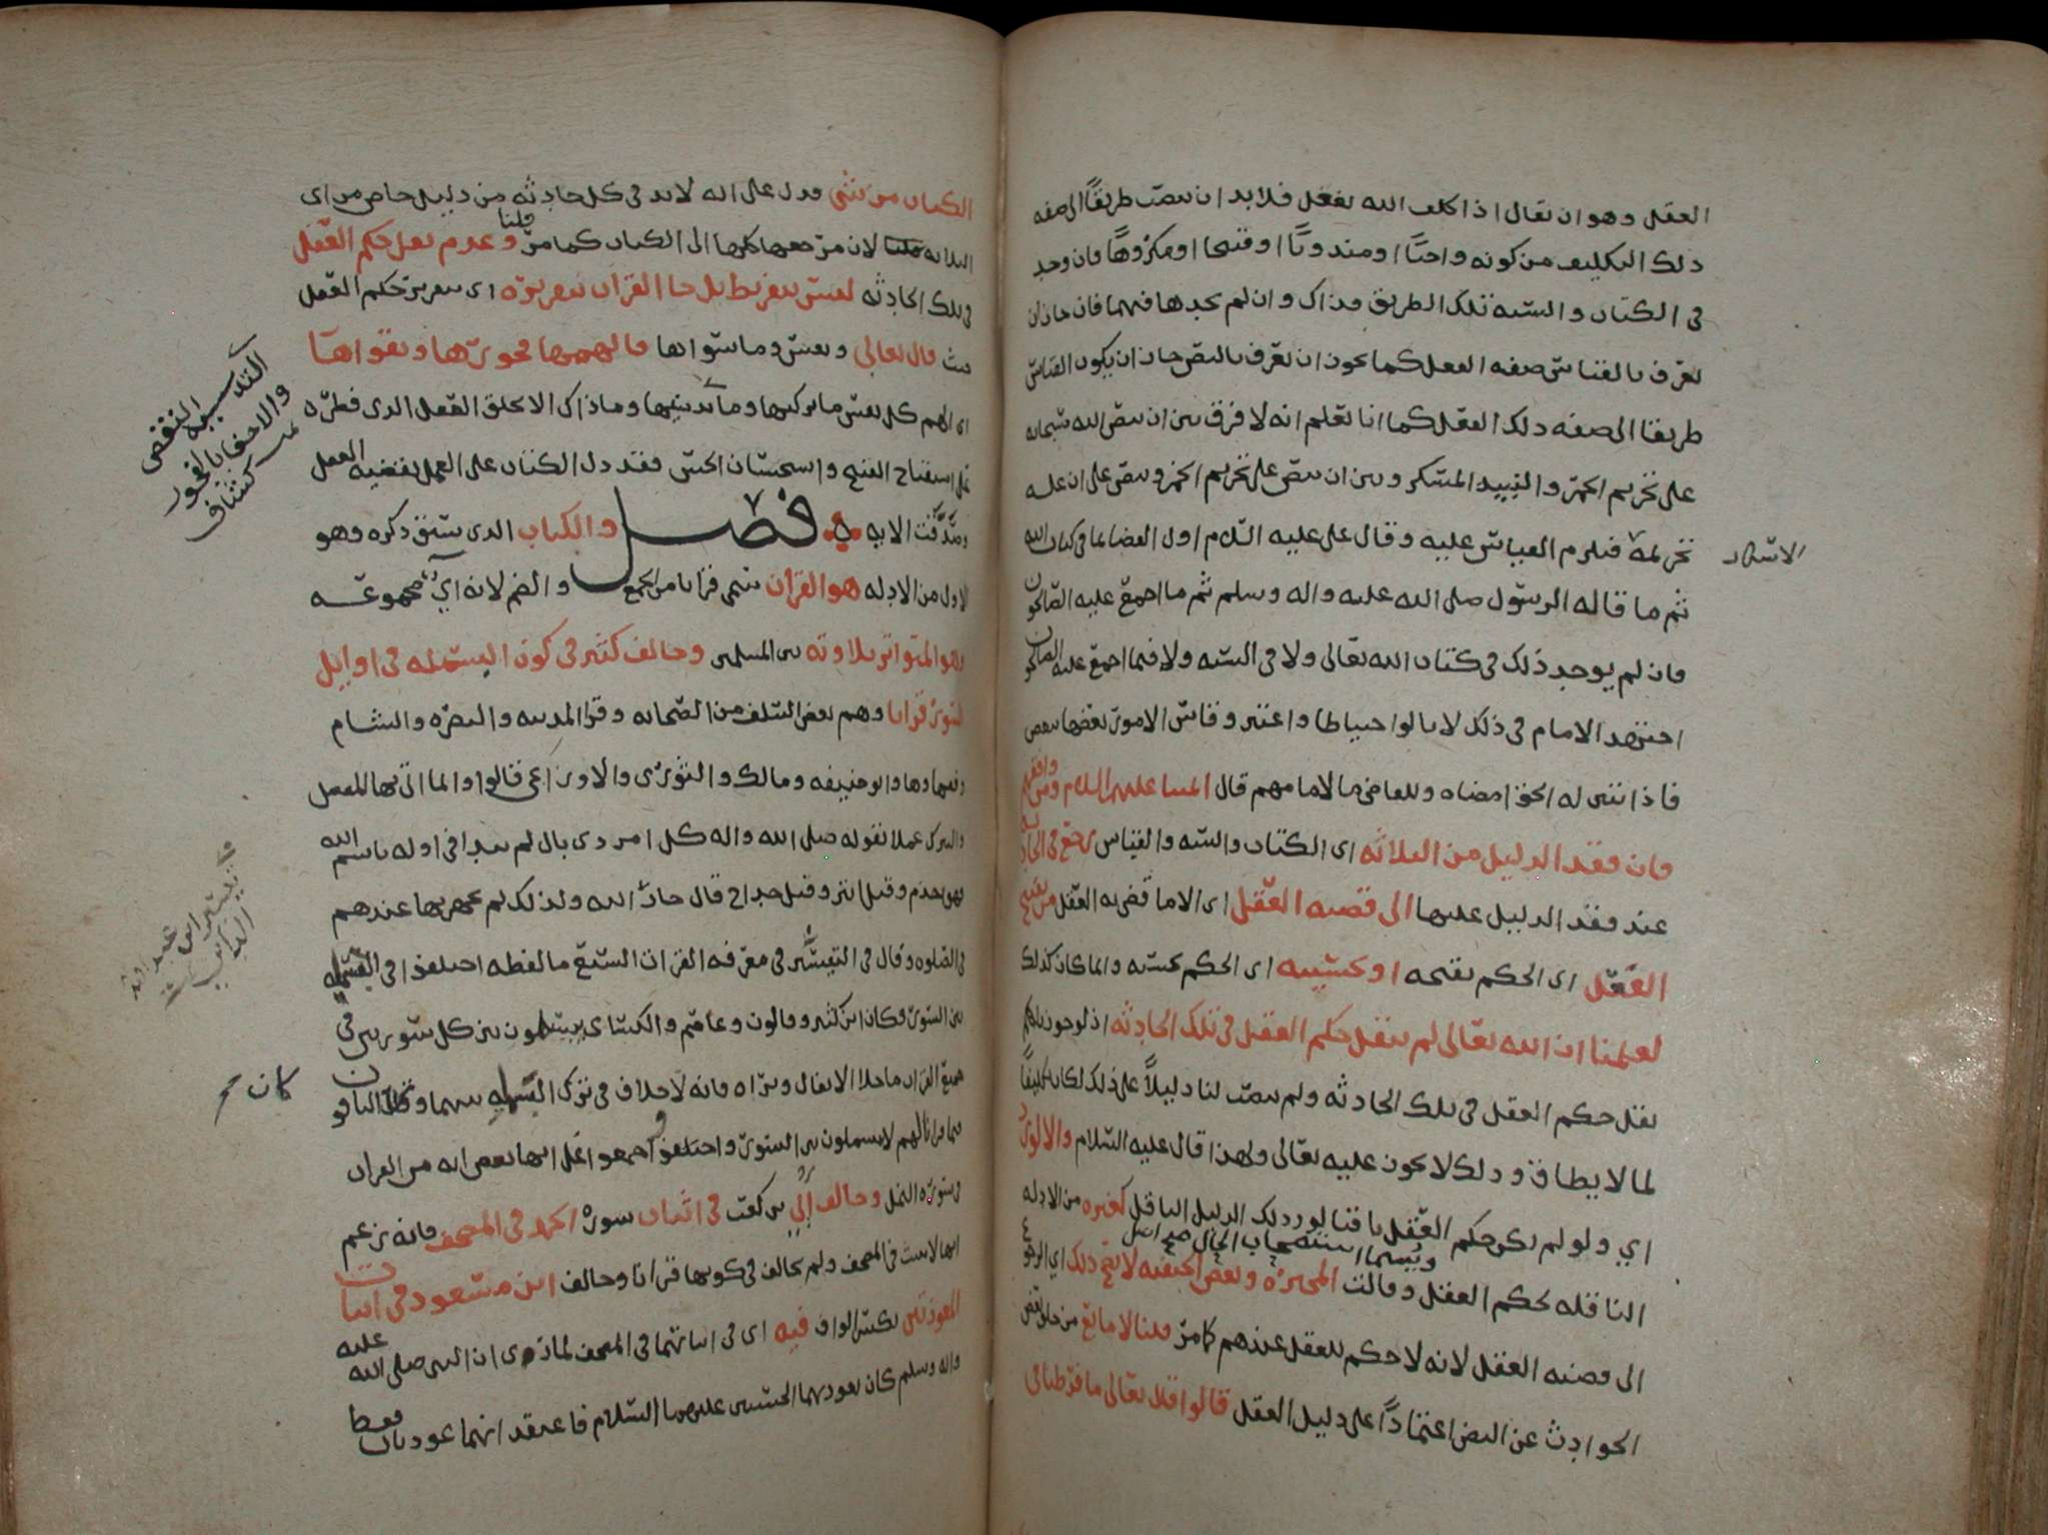 العقل وهو ان يقال اذا كلف الله بفعل فلا بد ان ينصب طريقًا الى صفه
ذلك التكليف من كونه واجبًا او مندوبًا او قبيحا او مكروهًا فان وجد
في الكتاب والسنه تلك الطريق فذاك وان لم نجدها فيهما فان جاز ان
نعرف بالقياس صفه الفعل كما يجوز ان نعرف بالنص جاز ان يكون القياس
طريقا الى صفه ذلك الفعل كما انا نعلم انه لا فرق بين ان ينص الله سبحانه
على تحريم الخمر والنبيذ المسكر وبين ان ينص على تحريم الخمر وينص على ان عله
تحريمه فيلزم القياس عليه وقال علي عليه السلام اول القضا بما في كتاب الله
ثم ما قاله الرسول صلى الله عليه واله وسلم ثم ما اجمع عليه الصالحون
فان لم يوجد ذلك في كتاب الله تعالى ولا في السنه ولا فيما اجمع عليه الصالحون
اجتهد الامام في ذلك لا يالوا احتياطا واعتبر وقاس الامور بعضها ببعض
فاذا تبين له الحق امضاه وللقاضي ما لامامهم قال ائمتنا عليهم السلام ومن وافقهم
وان فقد الدليل من الثلاثه اى الكتاب والسنه والقياس رجع في الحادثه
عند فقد الدليل عليها الى قضيه العقل اى الا ما قضى به العقل من تقبيح
الفعل اى الحكم بقبحه او تحسينه اى الحكم بحسنه وانما كان كذلك
لعلمنا ان الله تعالى لم ينقل حكم العقل في تلك الحادثه اذ لو جوزنا انه
نقل حكم العقل في تلك الحادثه ولم ينصب لنا دليلاً على ذلك لكان تكليفًا
لما لا يطاق وذلك لا يجوز عليه تعالى ولهذا قال عليه السلام والا لورد
اي ولو لم يكن حكم العقل باقيا لورد ذلك الدليل الناقل كغيره من الادله
الناقله لحكم العقل وقالت المجبره وبعض الحنفيه لا يقع ذلك اي الرجوع
الى قضيه العقل لانه لا حكم للعقل عندهم كما مر قلنا لا مانع من خلو بعض
الحوادث عن النص اعتمادًا على دليل العقل قالوا قال تعالى ما فرطنا في
الكتاب من شي فدل على انه لا بد في كل حادثه من دليل خاص من اى
الثلاثه قلنا لان مرجعها كلها الى الكتاب كما مر وعدم نقل حكم العقل
في تلك الحادثه ليس بتفريط بل جا القران بتقريره اى بتقرير حكم العقل
حيث قال تعالى ونفس وما سواها فالهمها فجورها وتقواها
اى الهم كل نفس ما يزكيها وما يدنسها وما ذاك الا بخلق العقل الذى فطره
على استقباح القبيح واستحسان الحسن فقد دل الكتاب على العمل بقضيه العقل
وصدقت الايه فصل والكتاب الذى سبق ذكره وهو
الاول من الادله هو القران سمى قرانا من الجمع والضم لانه اي مجموعه
وهو المتواتر تلاوته بين المسلمين وخالف كثير في كون البسمله في اوايل
السور قرانا وهم بعض السلف من الصحابه وقرا المدينه والبصره والشام
وفقهاوها وابو حنيفه ومالك والثورى والاوزاعي قالوا وانما اتى بها للفصل
والتبرك عملا بقوله صلى الله واله كل امر ذى بال لم يبدا في اوله باسم الله
فهو اجذم وقيل ابتر وقيل خداج قال جار الله ولذلك لم يجهر بها عندهم
في الصلوه وقال في التيسير في معرفه القرات السبع ما لفظه اختلفوا في التسميه
بين السور فكان ابن كثير وقالون وعاصم والكسائ يبسملون بين كل سورتين في
جميع القران ما خلا الانفال وبراه فانه لا خلاف في ترك البسمله بينهما وكان الباقون
فيما قرانا لهم لا يبسملون بين السور واختلفوا واجمعوا على انها بعض ايه من القران
في سوره النمل وخالف اُبي بن كعب في اثبات سورة الحمد في المصحف فانه زعم
انها لا تثبت في المصحف ولم يخالف في كونها قرانا وخالف ابن مسعود في اثبات
المعوذتين بكسر الواو فيه اى في اثباتهما في المصحف لما روى ان النبي صلى الله عليه
واله وسلم كان يعوذ بهما الحسنين عليهما السلام فاعتقد انهما عوذتان فقط